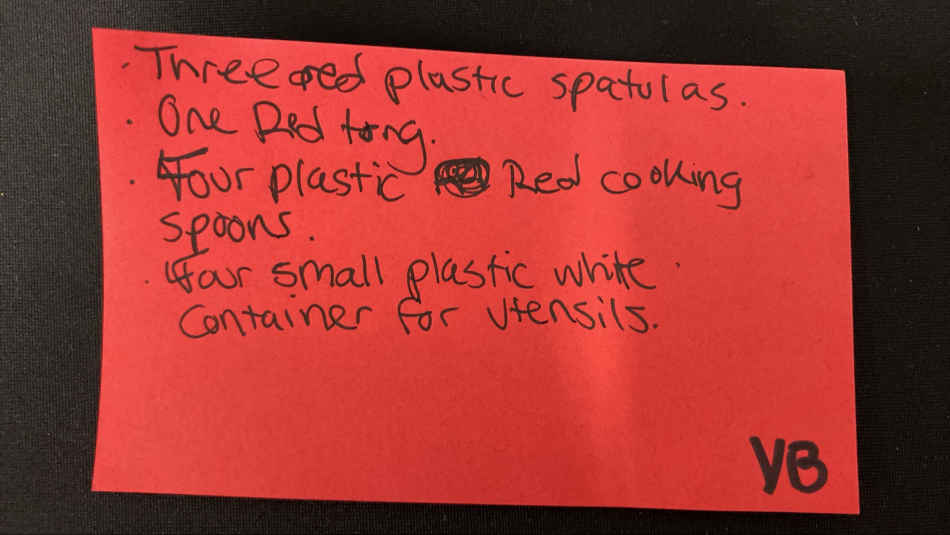 · Three red plastic spatulas.
· One Red tong.
· Four plastic Red cooking
spoons.
· Four small plastic white
container for utensils.
YB